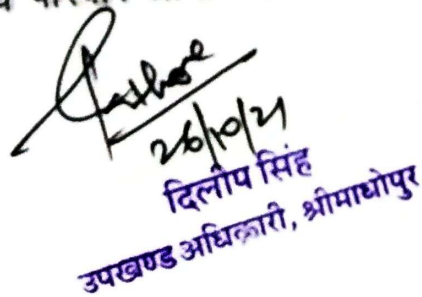 26/10/21
दिलीप सिंह
उपखण्ड अधिकारी, श्रीमाधोपुर